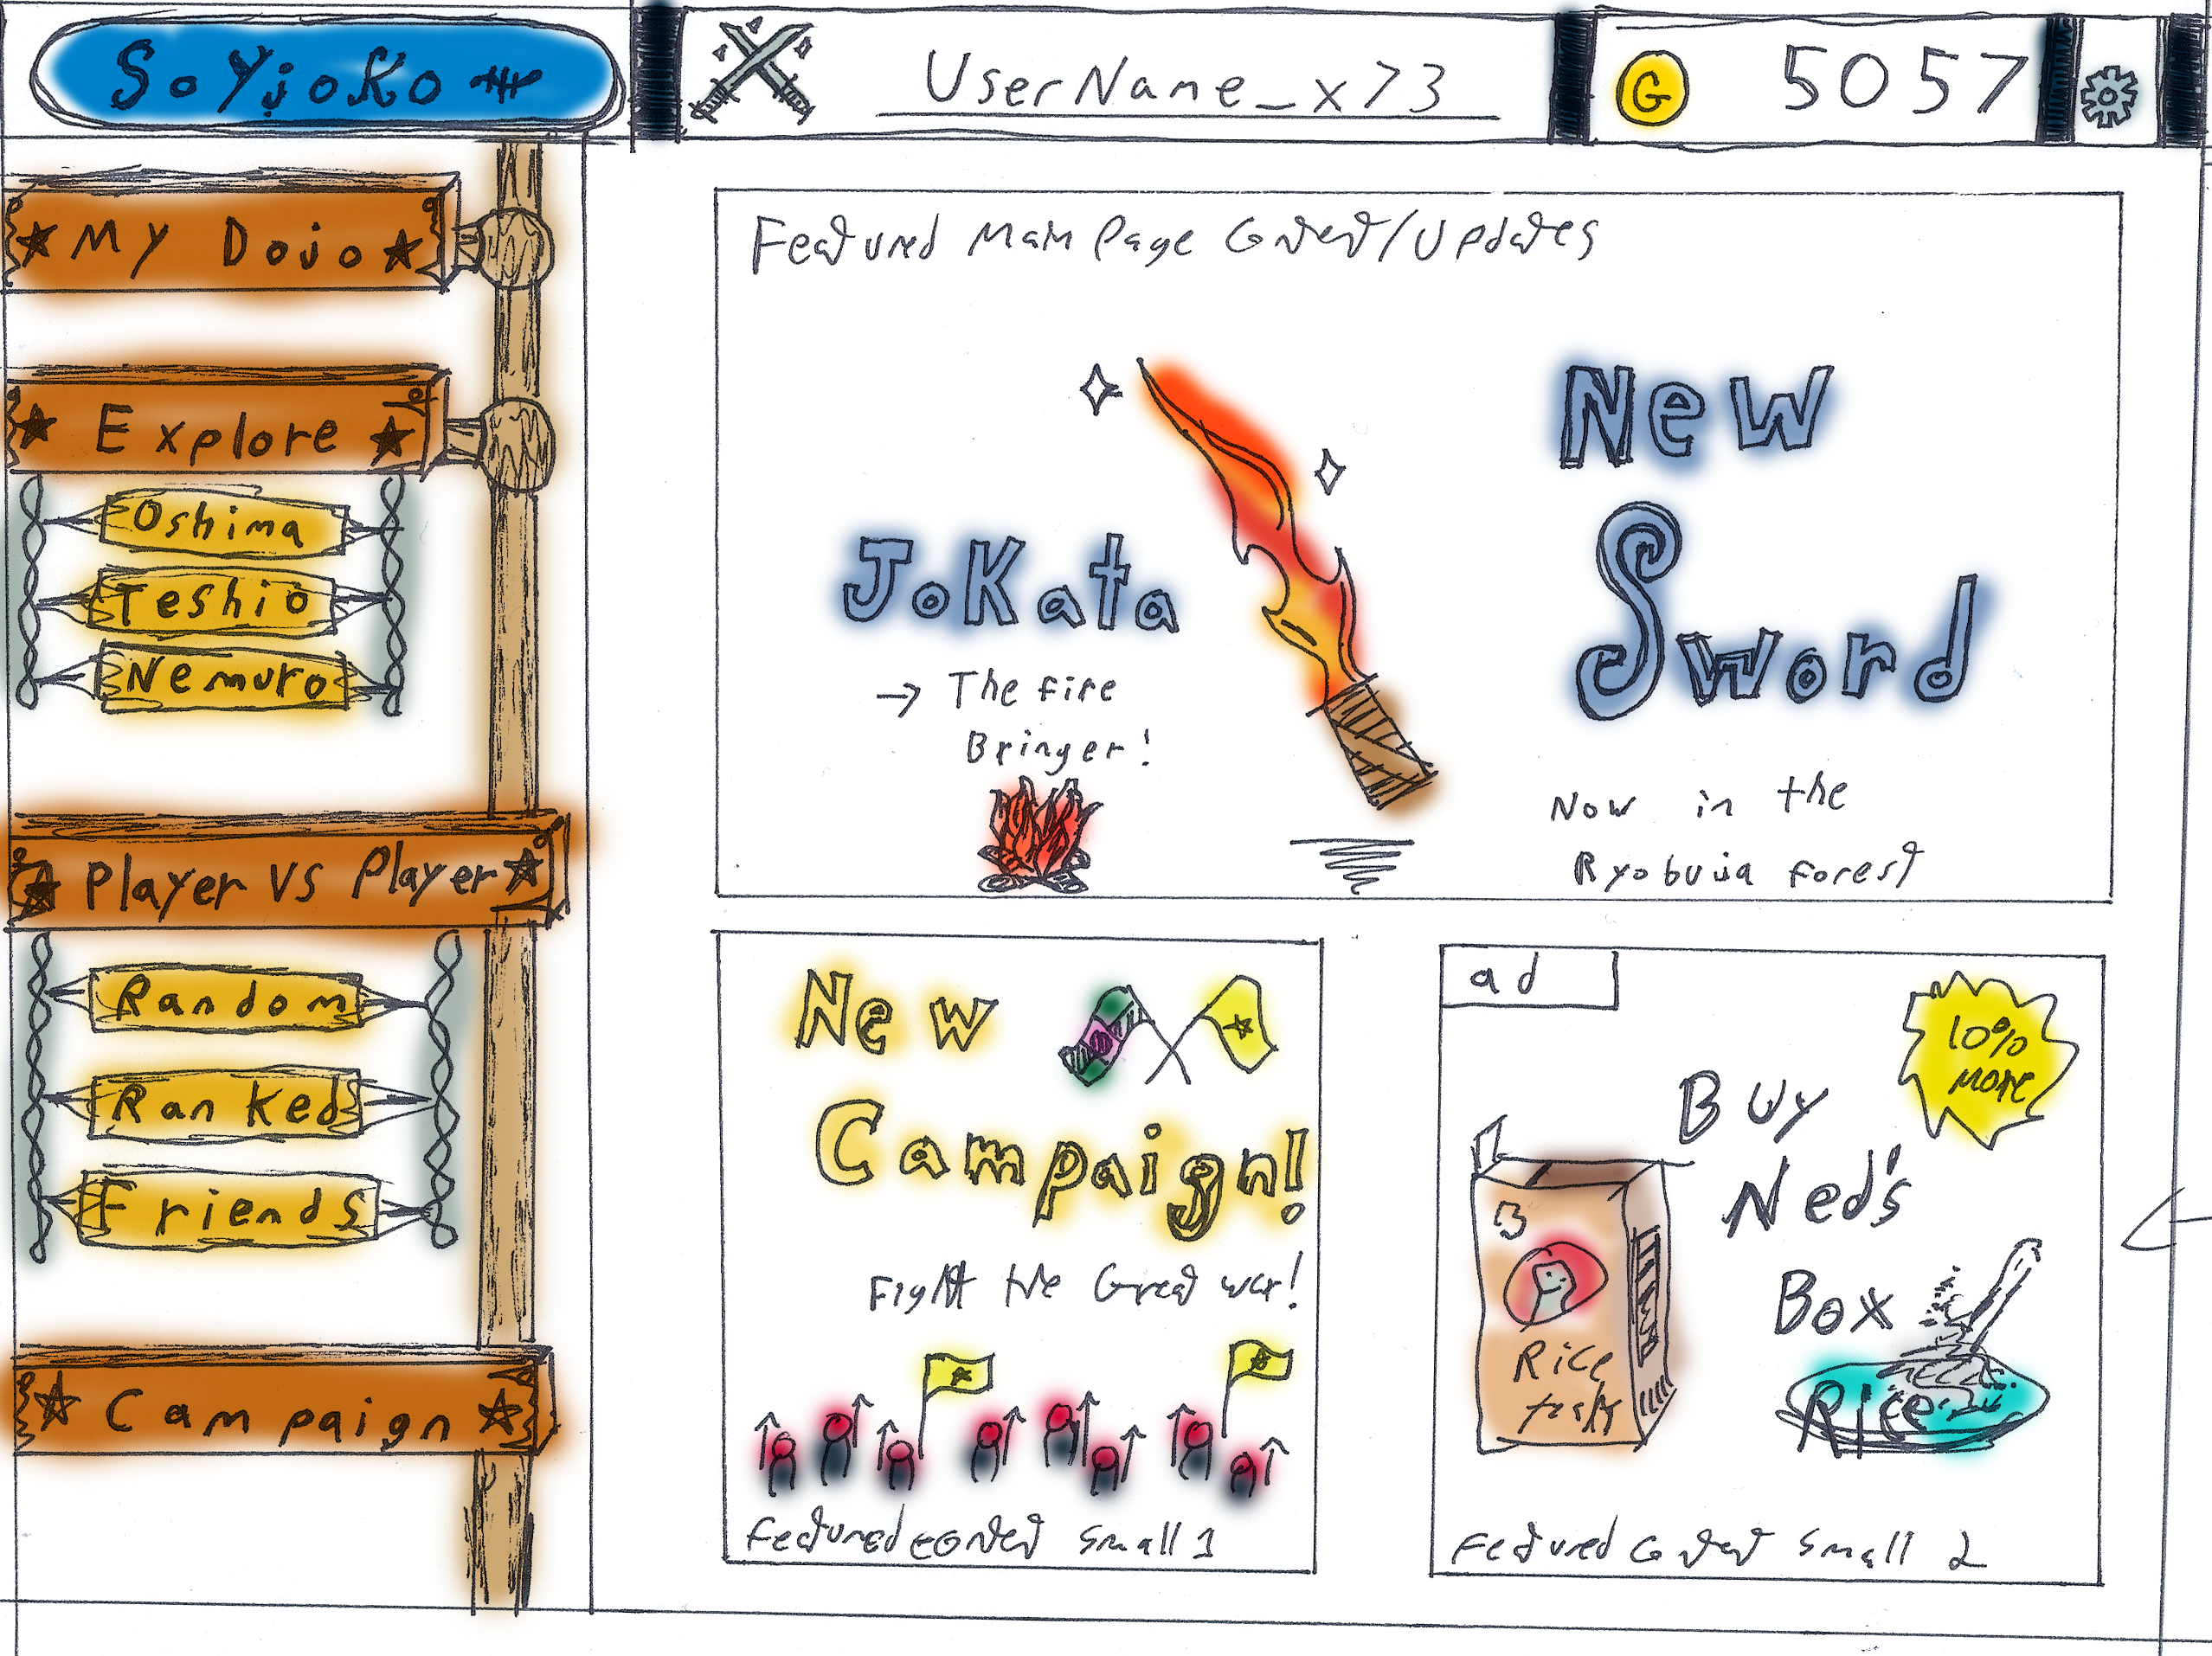 SoYjoKo
UserName_x73
G 5057
My Dojo
Explore
Oshima
Teshio
Nemuro
Player vs Player
Random
Ranked
Friends
Campaign
Featured Main Page Content/Updates
New
Sword
JoKata
→ The fire
Bringer!
Now in the
forest
New
Campaign!
Fight the Great war!
Featured content small 1
ad
10%
more
Buy
Ned's
Box
Rice
Rice
Featured Content Small 2